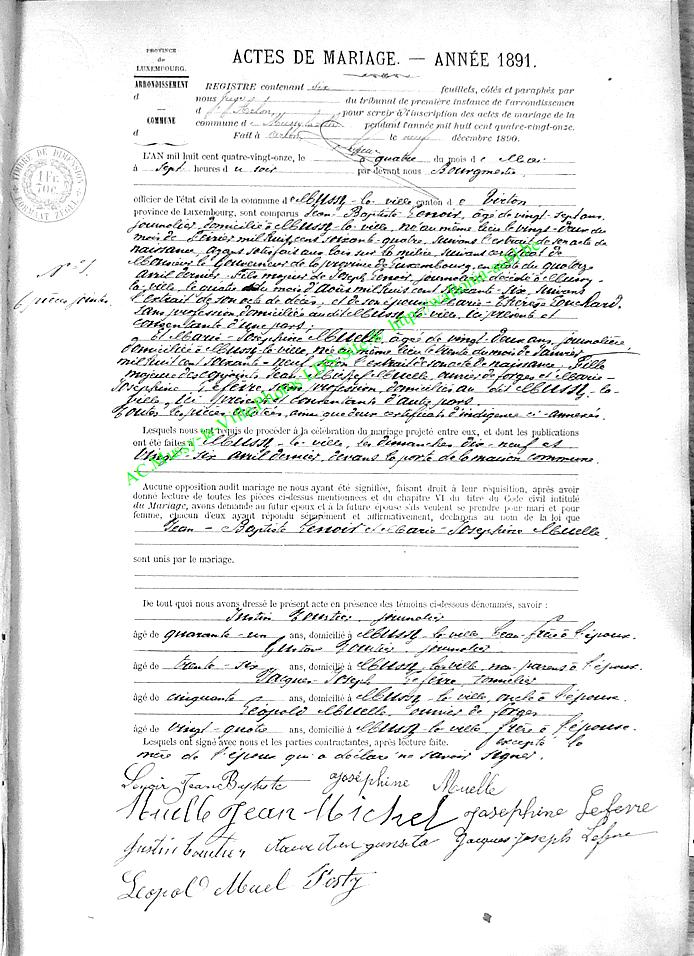 PROVINCE
de
LUXEMBOURG.
ACTES DE MARIAGE. — ANNÉE 1891.
ARRONDISSEMENT
d
COMMUNE
d
REGISTRE contenant six feuillets, côtés et paraphés par
nous juge du tribunal de première instance de l'arrondissement
d'Arlon, pour servir à l'inscription des actes de mariage de la
commune de Mussy-la-ville pendant l'année mil huit cent quatre-vingt-onze.
Fait à Arlon, le neuf décembre 1890.
TIMBRE DE DIMENSION
1 FR.
L'AN mil huit cent quatre-vingt-onze, le quatre du mois de Mai
à Sept heures du soir par devant nous Bourgmestre
officier de l'état civil de la commune de Mussy-la-ville canton de Virton
province de Luxembourg, sont comparus Jean-Baptiste Lenoir, âgé de vingt-sept ans,
journalier, domicilié à Mussy-la-ville, né au même lieu le vingt-deux du
mois de Février mil huit cent soixante-quatre, suivant l'extrait de son acte de
naissance, ayant satisfait aux lois sur la milice suivant certificat de
Monsieur le Gouverneur de la province de Luxembourg, en date du quatorze
avril dernier. Fils majeur de Joseph Lenoir, journalier, décédé à Mussy-
la-ville, le quatre du mois d'août mil huit cent soixante-six, suivant
l'extrait de son acte de décès, et de son épouse Marie-Thérèse Souchard,
sans profession, domiciliée audit Mussy-la-ville, ici présente et
consentante d'une part;
N° 5.
6 pièces jointes.
et Marie-Joséphine Muelle, âgée de vingt-deux ans, journalière,
domiciliée à Mussy-la-ville, née au même lieu le trente du mois de janvier
mil huit cent soixante-neuf, selon l'extrait de son acte de naissance. Fille
majeure des conjoints Jean-Michel Muelle, ouvrier de forges et Marie-
Joséphine Lefèvre, sans profession, domiciliés au dit Mussy-la-
ville, ici présents et consentants d'autre part.
Toutes les pièces citées, ainsi que deux certificats d'indigence ci-annexés.
Lesquels nous ont requis de procéder à la célébration du mariage projeté entre eux, et dont les publications
ont été faites à Mussy-la-ville, les dimanches dix-neuf et
vingt-six avril dernier, devant la porte de la maison commune.
Aucune opposition audit mariage ne nous ayant été signifiée, faisant droit à leur réquisition, après avoir
donné lecture de toutes les pièces ci-dessus mentionnées et du chapitre VI du titre du Code civil intitulé
du Mariage, avons demandé au futur époux et à la future épouse s'ils veulent se prendre pour mari et pour
femme, chacun d'eux ayant répondu séparément et affirmativement, déclarons au nom de la loi que
Jean-Baptiste Lenoir et Marie-Joséphine Muelle
sont unis par le mariage.
De tout quoi nous avons dressé le présent acte en présence des témoins ci-dessous dénommés, savoir :
Justin journalier
âgé de quarante-un ans, domicilié à Mussy-la-ville, beau-frère à l'époux.
journalier
âgé de trente-six ans, domicilié à Mussy-la-ville, non parent à l'époux.
Jacques-Joseph Lefèvre, tonnelier
âgé de cinquante ans, domicilié à Mussy-la-ville, oncle à l'épouse
Léopold Muelle, ouvrier de forges
âgé de vingt-quatre ans, domicilié à Mussy-la-ville, frère à l'épouse.
Lesquels ont signé avec nous et les parties contractantes, après lecture faite. excepté la
mère de l'époux qui a déclaré ne savoir signer.
Lenoir Jean Baptiste Joséphine Muelle
Muelle Jean Michel Josephine Lefevre
Jacques Joseph Lefevre
Léopold Muel